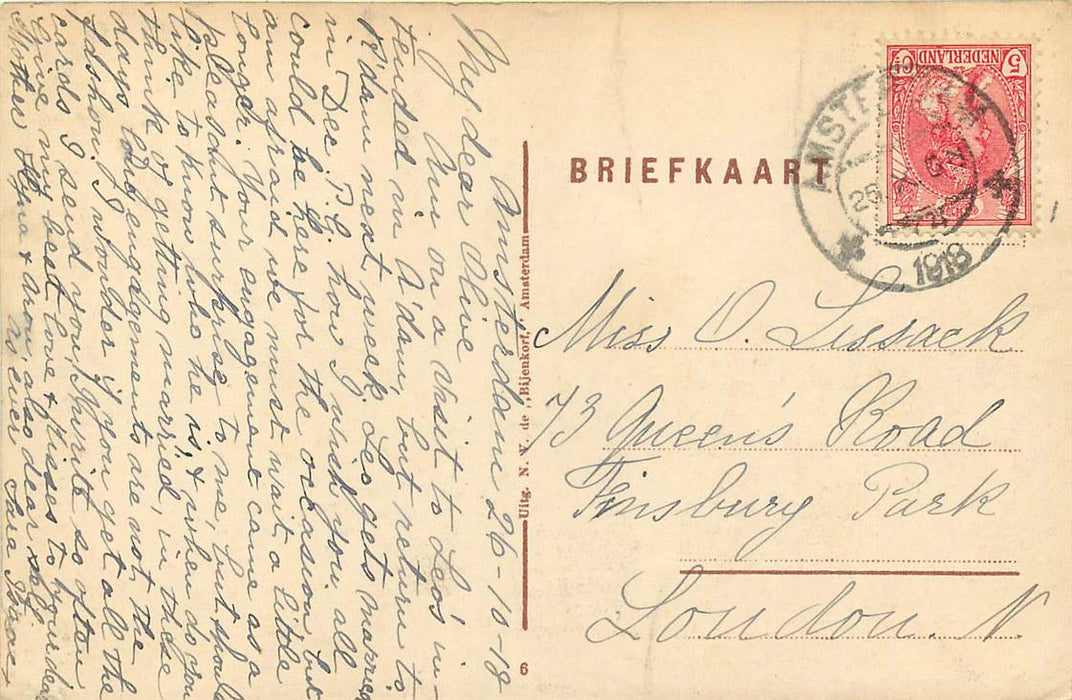 Amsterdam 26-10-18
My dear Olive
Am on a visit to Leo's in-
tended in A'dam, but return to
R'dam next week. Leo gets married
in Dec. T.G. how I wish you all
could be here for the occasion but
am afraid we must wait a little
longer. Your engagement came as a
pleasant surprise to me, but should
like to know who he is, & when do you
think of getting married, in these
days long engagements are not the
fashion. I wonder if you get all the
cards I send you, I write so often
Give my best love & kisses to your dear
Mother & Aron, also dear self
as ever Sara
BRIEFKAART
Uitg. N. V. de „Bijenkorf," Amsterdam
6
NEDERLAND
5
AMSTERDAM
1918
Miss O. Lissack
73 Queen's Road
Finsbury Park
London. N.